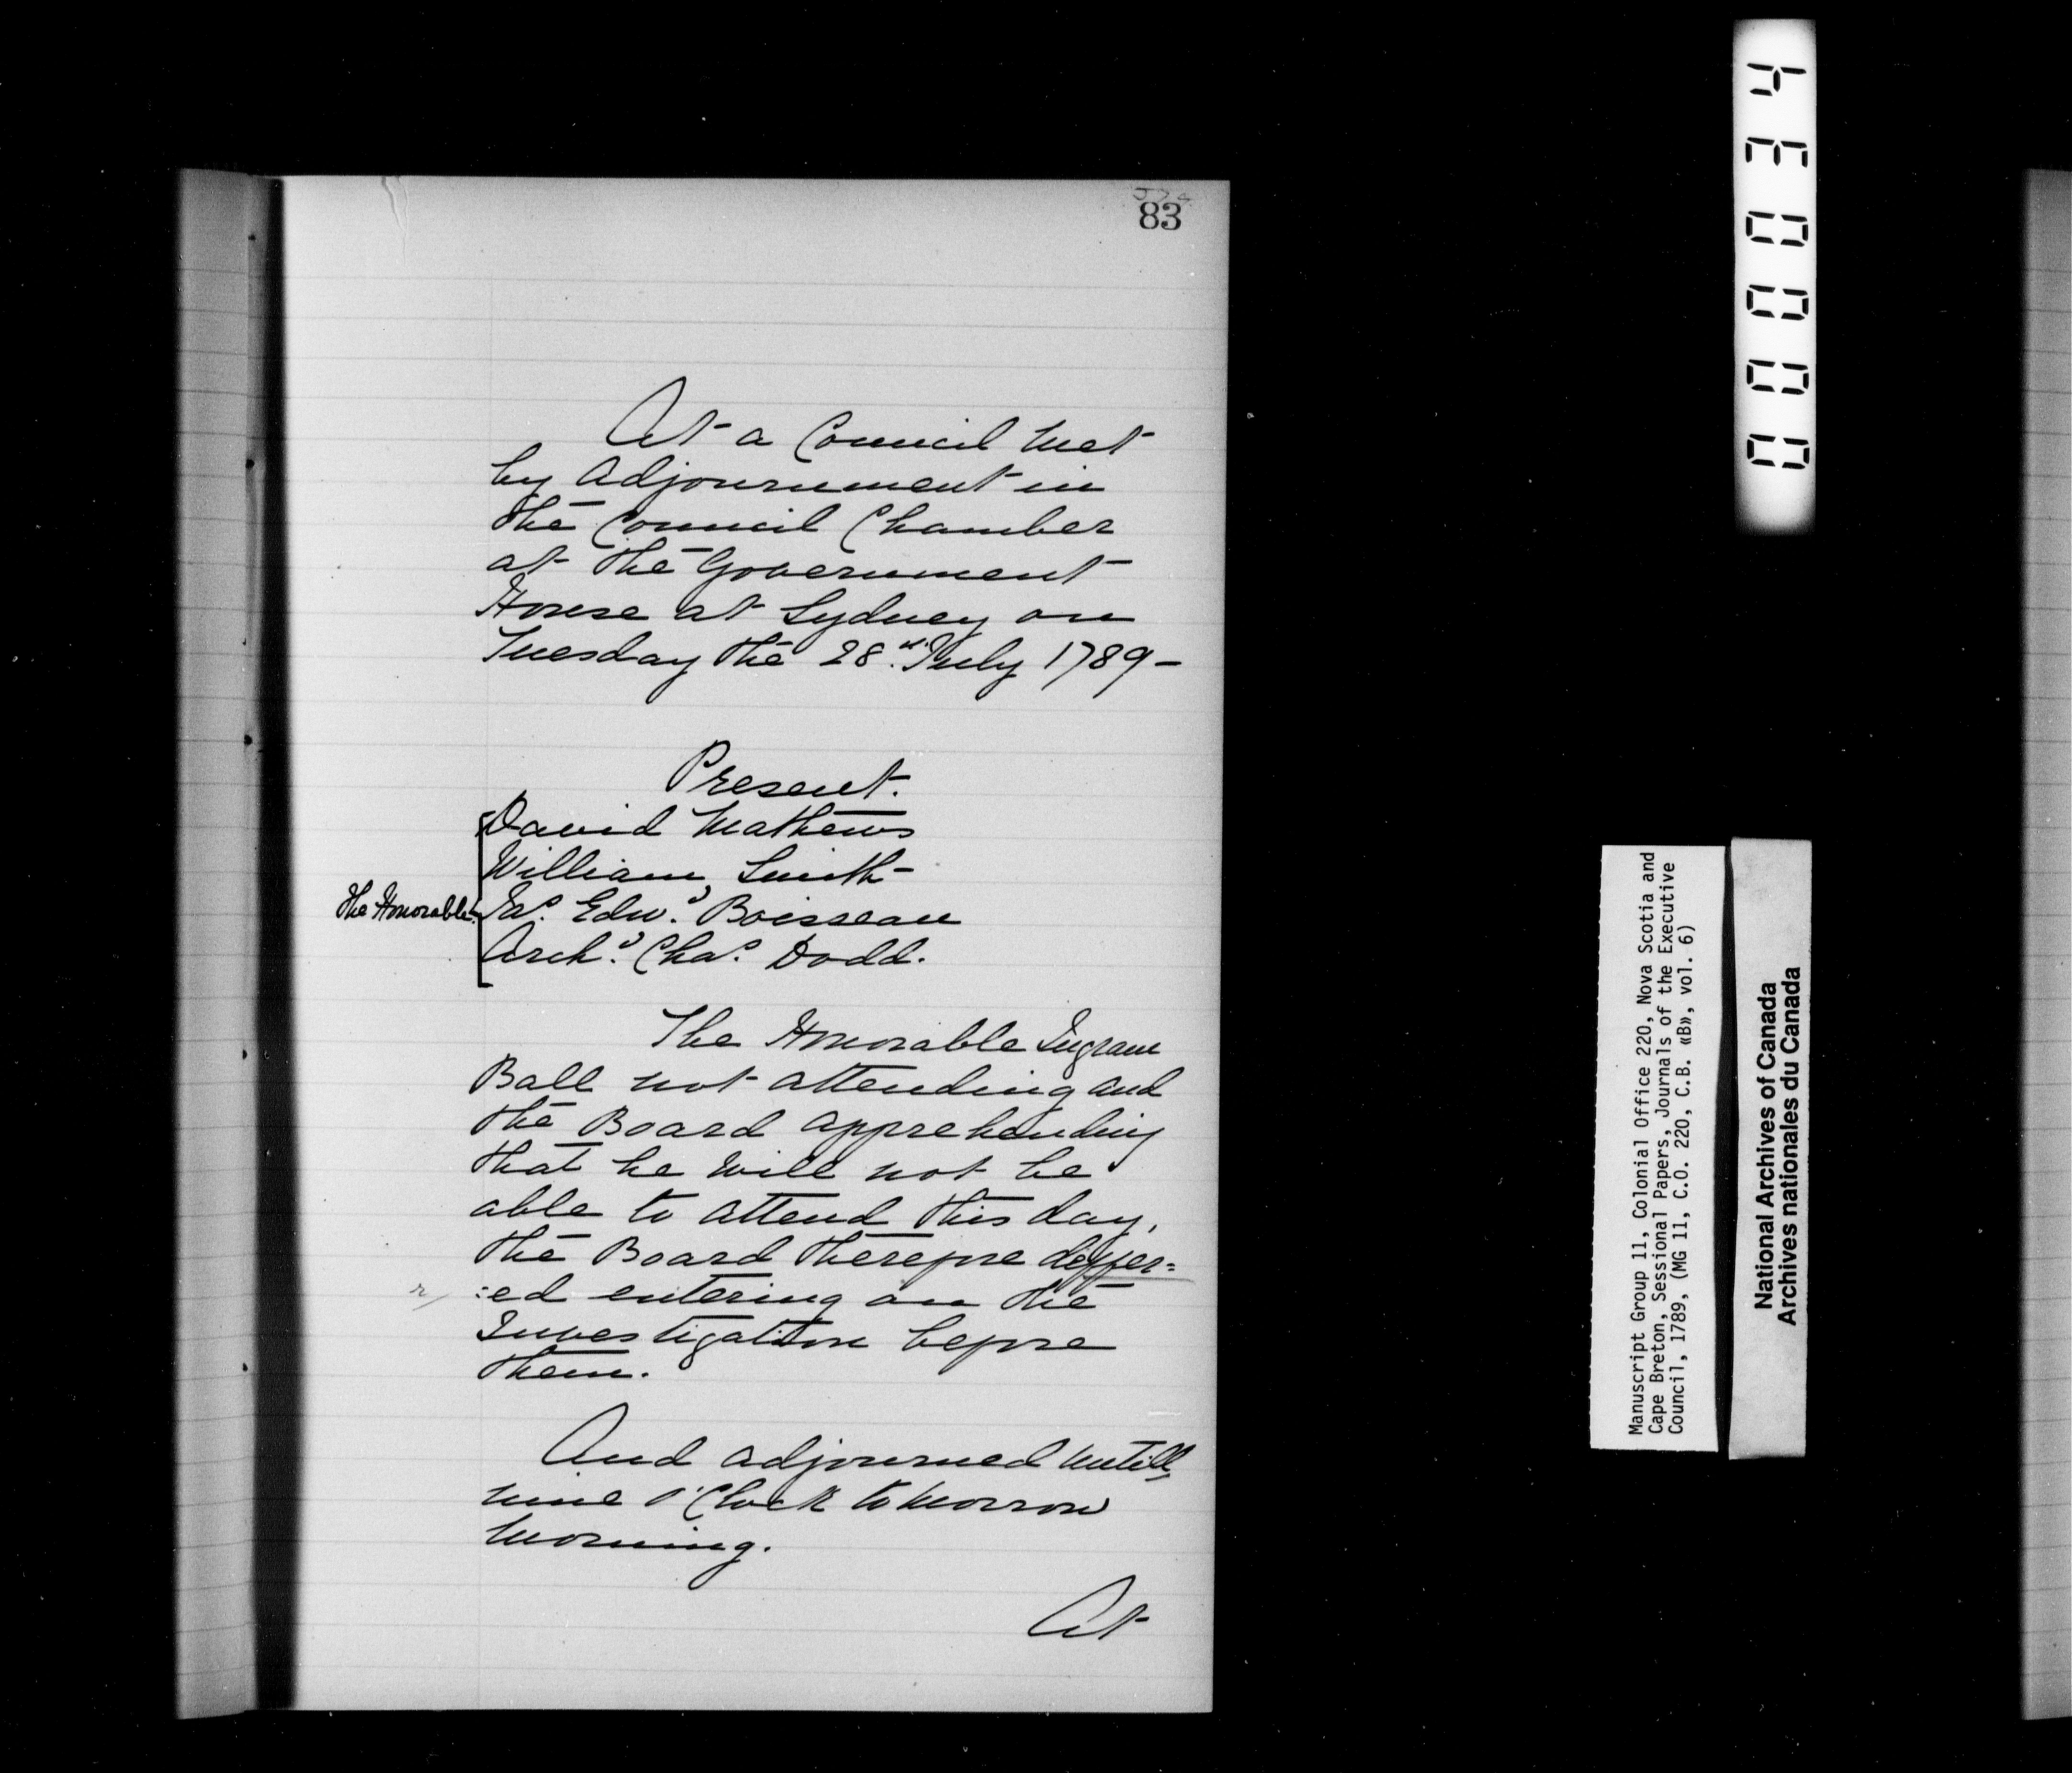 83
At a Council Met
by Adjournment in
the Council Chamber
at the Government
House at Sydney on
Tuesday the 28th July 1789 -
Present.
David Mathews
William Smith
The Honorable Jas. Edwd. Boisseau
Archd. Chas. Dodd.
The Honorable Ingram
Ball not attending and
the Board apprehending
that he will not be
able to attend this day,
the Board therefore deffer=
:ed entering on the
Investigation before
them.
And adjourned untill
nine o'Clock to Morrow
Morning.
At
000034
Manuscript Group 11, Colonial Office 220, Nova Scotia and
Cape Breton, Sessional Papers, Journals of the Executive
Council, 1789, (MG 11, C.O. 220, C.B. «B», vol. 6)
National Archives of Canada
Archives nationales du Canada